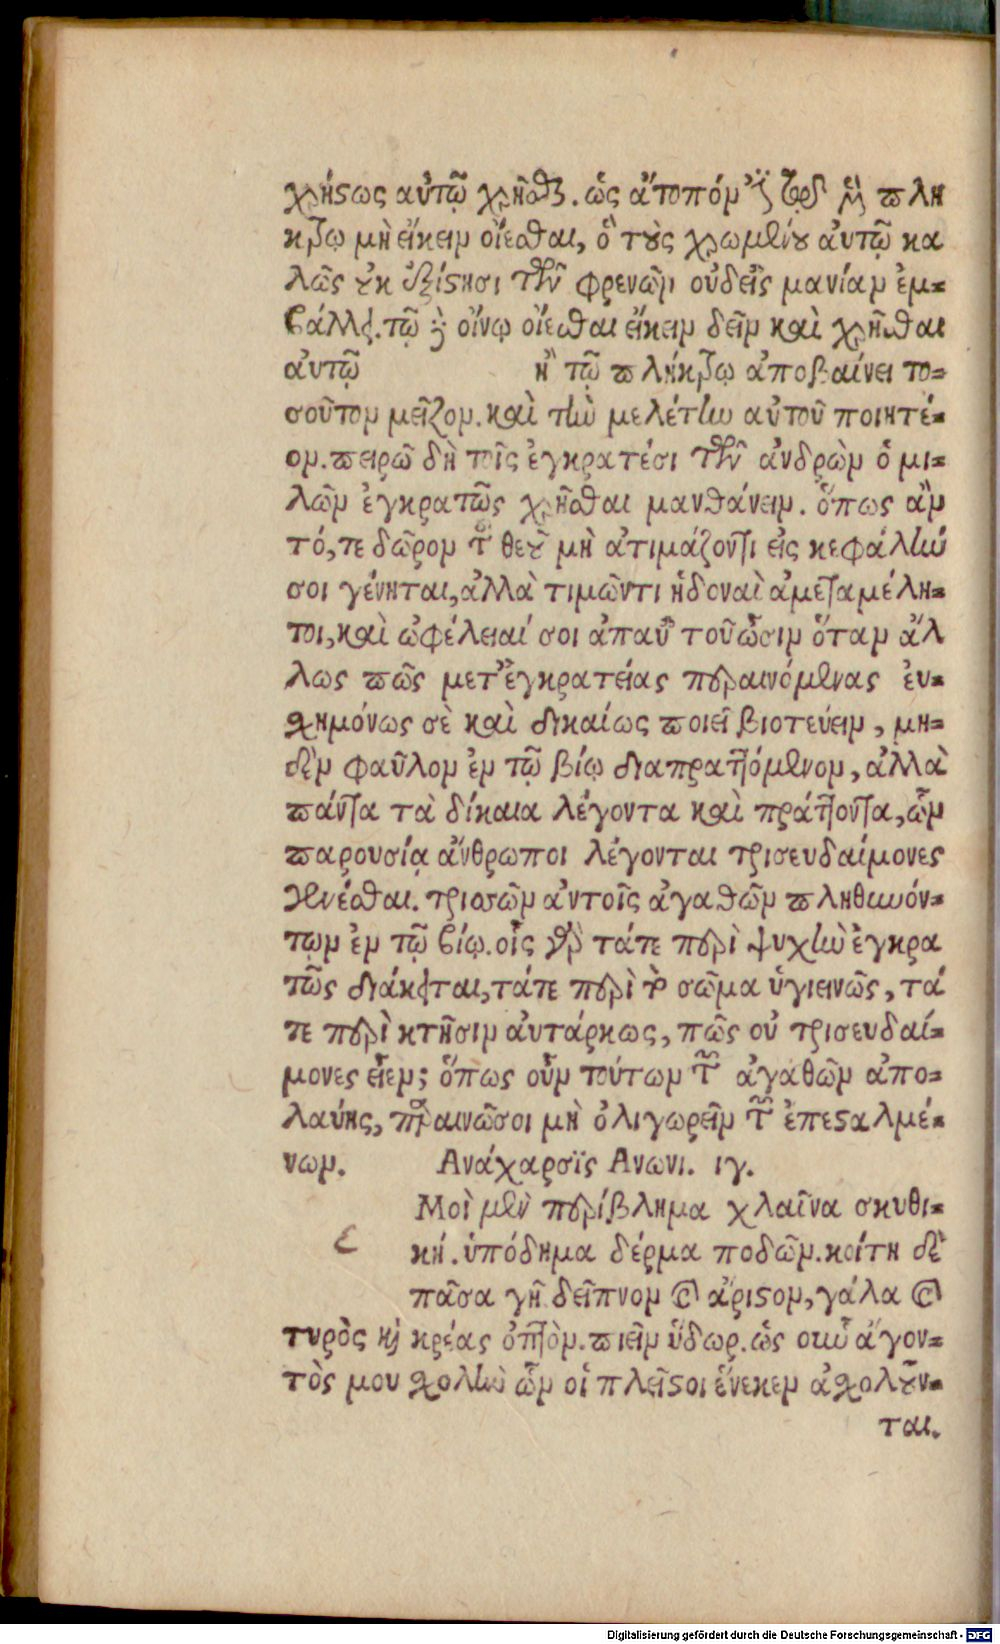 χρήστως αὐτῷ χρῆσθαι. ὡς ἄτοπόν ἐστι τῷ μὲν πλή
κτρῳ μὴ εἴκειν οἴεσθαι, ὃ τοὺς χρωμένους αὐτῷ κα
λῶς οὐκ ἐξίστησι τῶν φρενῶν οὐδεὶς μανίαν ἐμ-
βάλλει. τῷ δὲ οἴνῳ οἴεσθαι εἴκειν δεῖν καὶ χρῆσθαι
αὐτῷ ἢ τῷ πλήκτρῳ ἀποβαίνει το-
σοῦτον μεῖζον. καὶ τὴν μελέτην αὐτοῦ ποιητέ-
ον. πειρῶ δὴ τοῖς ἐγκρατέσι τῶν ἀνδρῶν ὁμι-
λῶν ἐγκρατῶς χρῆσθαι μανθάνειν. ὅπως ἂν
τό, τε δῶρον τοῦ θεοῦ μὴ ἀτιμάζοντι εἰς κεφαλήν
σοι γένηται, ἀλλὰ τιμῶντι ἡδοναὶ ἀμεταμέλη-
τοι, καὶ ὠφέλειαί σοι ἀπ' αὐτοῦ ὦσιν ὅταν ἄλ
λως πῶς μετ' ἐγκρατείας περαινόμενας εὐ-
σχημόνως σὲ καὶ δικαίως ποιεῖ βιοτεύειν, μη-
δὲν φαῦλον ἐν τῷ βίῳ διαπραττόμενον, ἀλλὰ
πάντα τὰ δίκαια λέγοντα καὶ πράττοντα, ὧν
παρουσίᾳ ἄνθρωποι λέγονται τρισευδαίμονες
γενέσθαι. τρισσῶν αὐτοῖς ἀγαθῶν πληθυνόν-
των ἐν τῷ βίῳ. οἷς γὰρ τάτε περὶ ψυχὴν ἐγκρα
τῶς διάκειται, τάτε περὶ τὸ σῶμα ὑγιεινῶς, τά
τε περὶ κτῆσιν αὐτάρκως, πῶς οὐ τρισευδαί-
μονες εἶεν; ὅπως οὖν τούτων τῶν ἀγαθῶν ἀπο-
λαύῃς, παραινῶ σοι μὴ ὀλιγωρεῖν τῶν ἐπεσταλμέ-
νων. Ανάχαρσϊς Ανωνι. ιγ.
Μοὶ μὲν περίβλημα χλαῖνα σκυθι-
κή. ὑπόδημα δέρμα ποδῶν. κοίτη δὲ
πᾶσα γῆ. δεῖπνον καὶ ἄριστον, γάλα καὶ
τυρὸς καὶ κρέας ὀπτὸν. πιεῖν ὕδωρ. ὡς οὖν ἄγον-
τὸς μου σχολὴν ὧν οἱ πλεῖστοι ἕνεκεν ἀσχολοῦν-
ται.
Digitalisierung gefördert durch die Deutsche Forschungsgemeinschaft - DFG